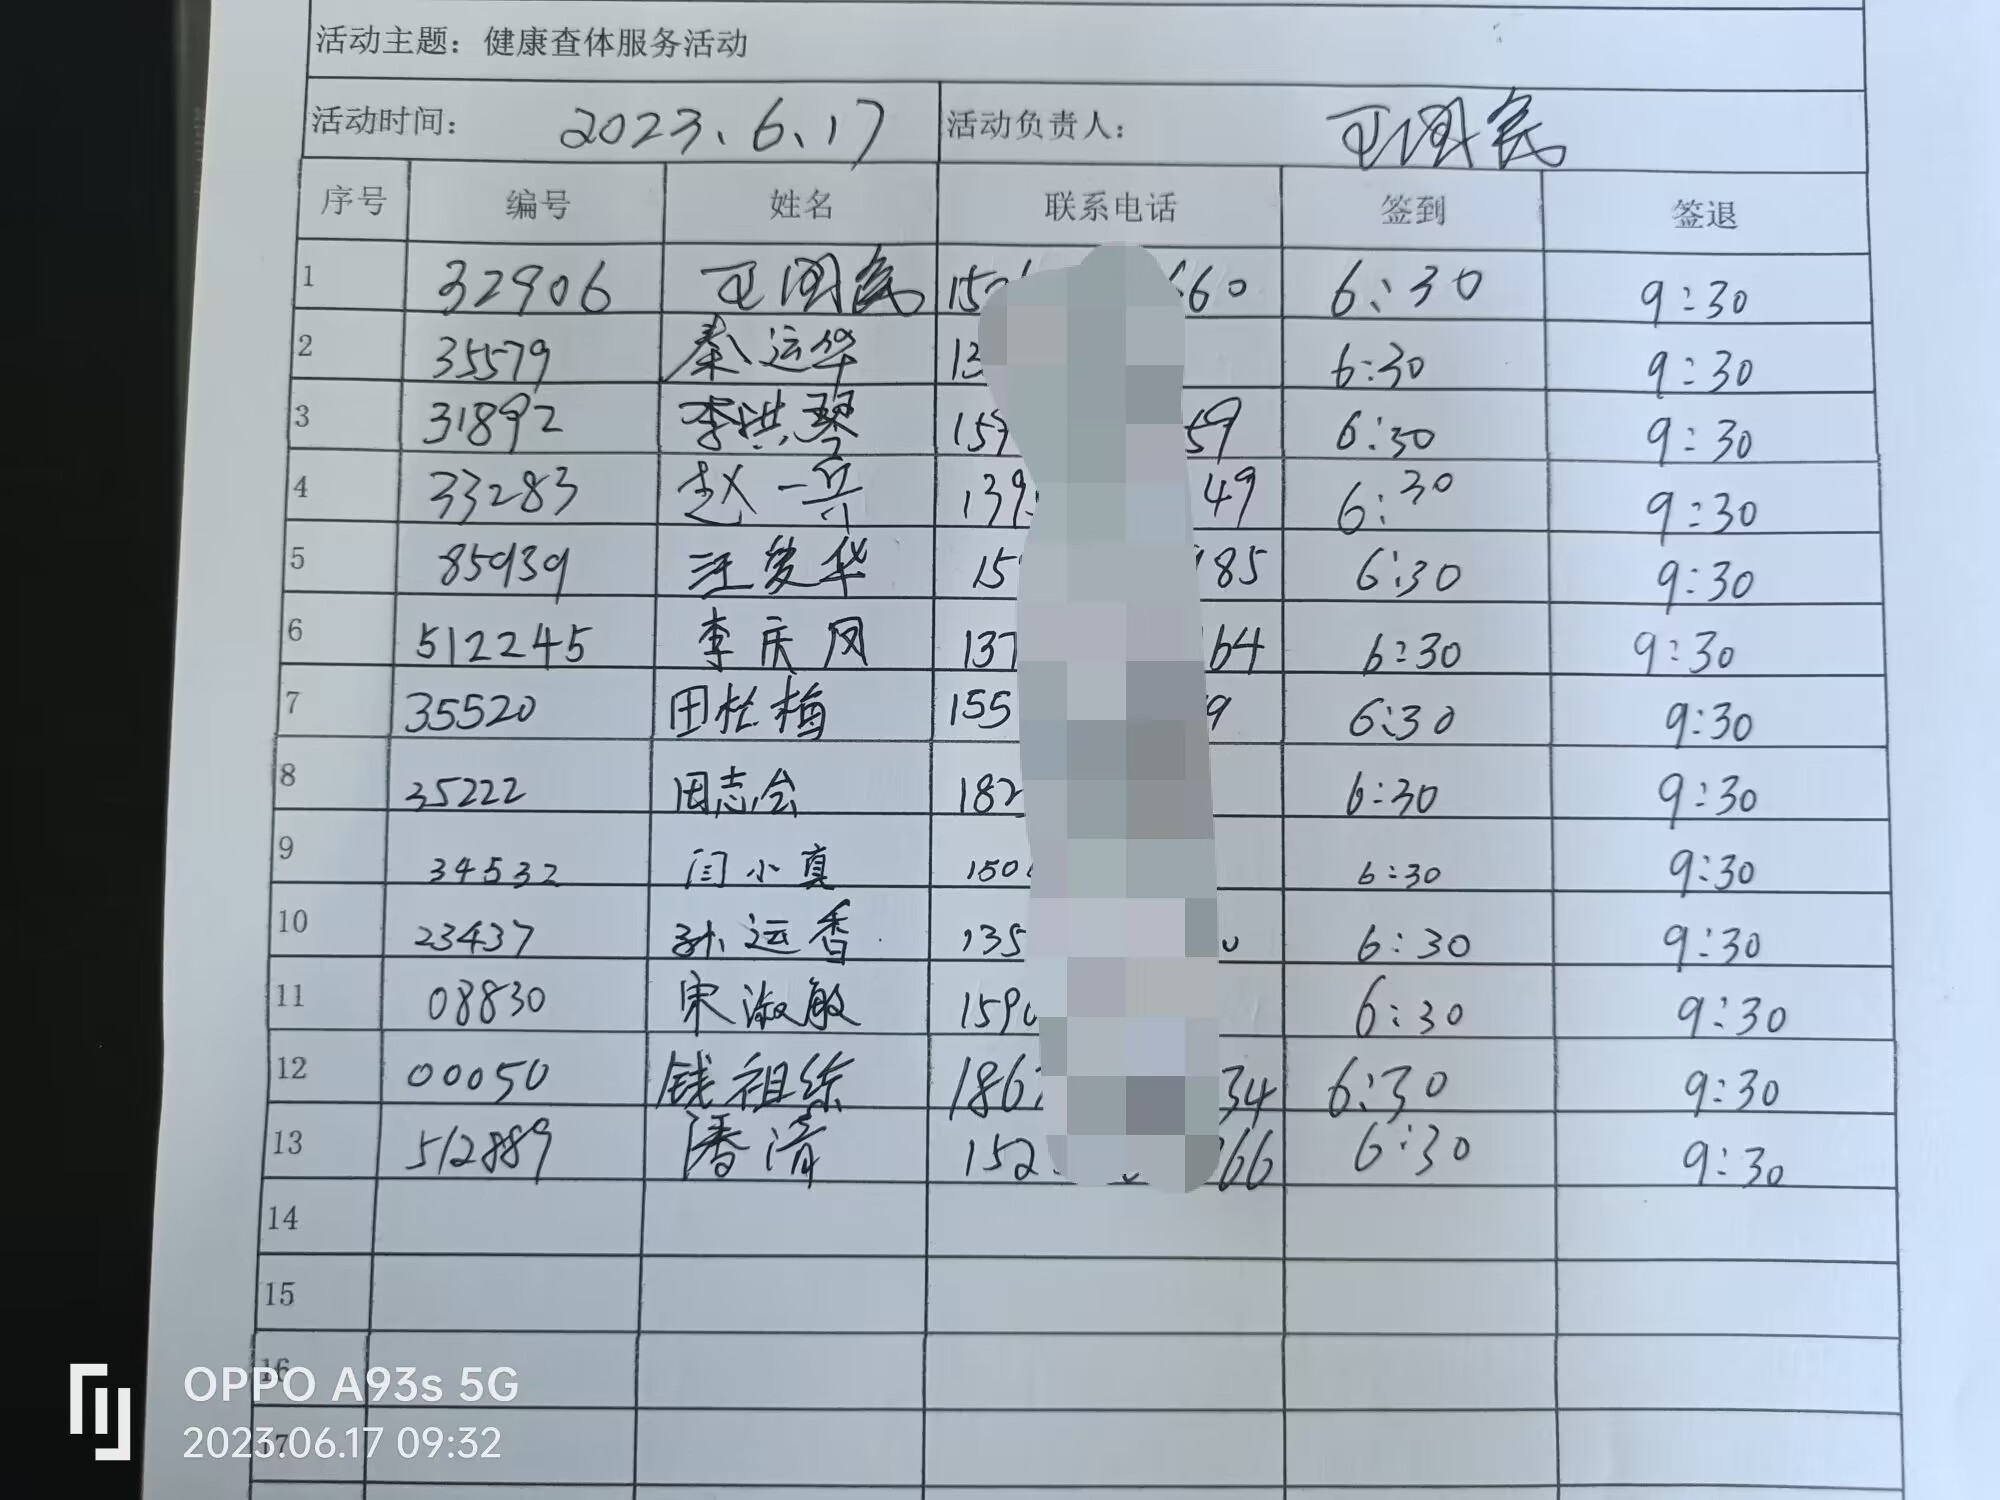 活动主题：健康查体服务活动
活动时间： 2023.6.17 活动负责人： 卫国民
序号 编号 姓名 联系电话 签到 签退
1 32906 卫国民 660 6:30 9:30
2 35579 秦运华 6:30 9:30
3 31892 李洪琴 59 6:30 9:30
4 33283 赵一兵 139 49 6:30 9:30
5 85939 汪爱华 15 185 6:30 9:30
6 512245 李庆凤 137 64 6:30 9:30
7 35520 田桂梅 155 9 6:30 9:30
8 35222 田志会 182 6:30 9:30
9 34532 闫小真 150 6:30 9:30
10 23437 孙运香 135 6:30 9:30
11 08830 宋淑敏 159 6:30 9:30
12 00050 钱祖 186 34 6:30 9:30
13 512889 潘清 152 66 6:30 9:30
14
15
16
17
OPPO A93s 5G
2023.06.17 09:32